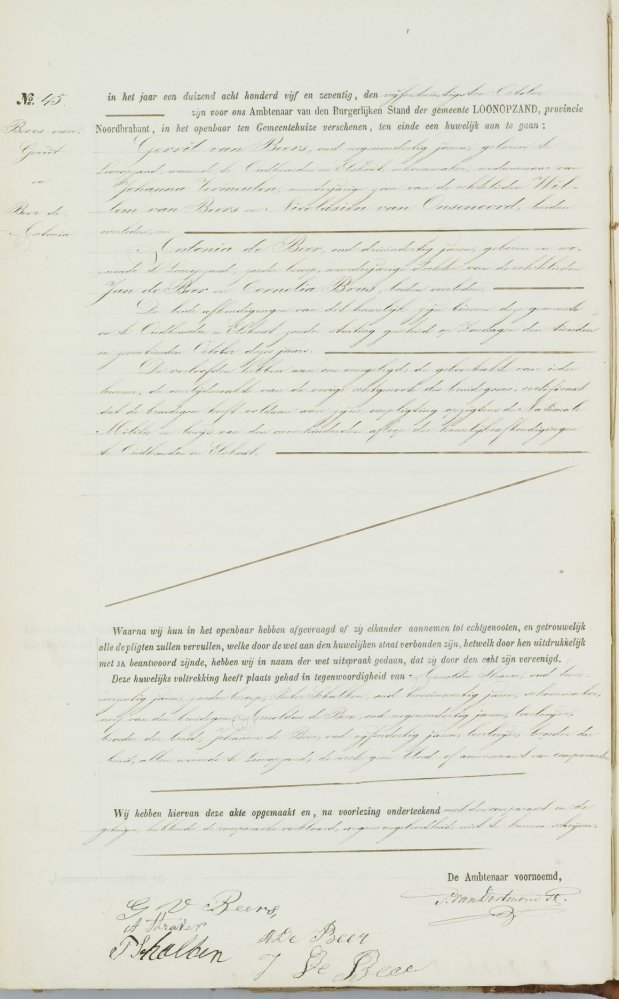 № 45.
Beers van
Gerrit
en
Beer de
Antonia
in het jaar een duizend acht honderd vijf en zeventig, den vijfentwintigsten October
zijn voor ons Ambtenaar van den Burgerlijken Stand der gemeente LOONOPZAND, provincie
Noordbrabant, in het openbaar ten Gemeentehuize verschenen, ten einde een huwelijk aan te gaan:
Gerrit van Beers, oud negenendertig jaren, geboren te
Loonopzand, wonende te Oudheusden en Elshout, schoenmaker, weduwnaar van
Johanna Vermeulen, meerderjarige zoon van de echtelieden Wil-
lem van Beers en Nicolasien van Onsenoord, beiden
overleden, en
Antonia de Beer, oud drieendertig jaren, geboren en wo-
nende te Loonopzand, zonder beroep, meerderjarige dochter van de echtelieden
Jan de Beer en Cornelia Brus, beiden overleden.
De beide afkondigingen van dit huwelijk zijn binnen deze gemeente
en te Oudheusden en Elshout zonder stuiting geschied op Zondagen den tienden
en zeventienden October dezes jaars.
De verloofden hebben aan ons overgelegd de geboorteakte van ieder
hunner, de overlijdensakte van de vorige echtgenoote des bruidegoms, certificaat
dat de bruidegom heeft voldaan aan zijne verpligting opzigtens de Nationale
Militie en bewijs van den onverhinderden afloop der huwelijksafkondigingen
te Oudheusden en Elshout.
Waarna wij hun in het openbaar hebben afgevraagd of zij elkander aannemen tot echtgenooten, en getrouwelijk
alle de pligten zullen vervullen, welke door de wet aan den huwelijken staat verbonden zijn, hetwelk door hen uitdrukkelijk
met JA beantwoord zijnde, hebben wij in naam der wet uitspraak gedaan, dat zij door den echt zijn vereenigd.
Deze huwelijks voltrekking heeft plaats gehad in tegenwoordigheid van: oud
jaren, zonder beroep, Scholten, oud jaren, schoenmaker,
van den bruidegom, Arnoldus de Beer, oud negenendertig jaren, leerlooijer,
broeder der bruid, Johannes de Beer, oud vijfendertig jaren, leerlooijer, broeder der
bruid, allen wonende te Loonopzand, de bloed- of aanverwant van comparanten
Wij hebben hiervan deze akte opgemaakt en, na voorlezing onderteekend met den comparant en de
getuigen, hebbende de comparante verklaard, wegens ongeleerdheid niet te kunnen schrijven.
De Ambtenaar voornoemd,
G V Beers,
A
P Scholten
A De Beer
J De Beer